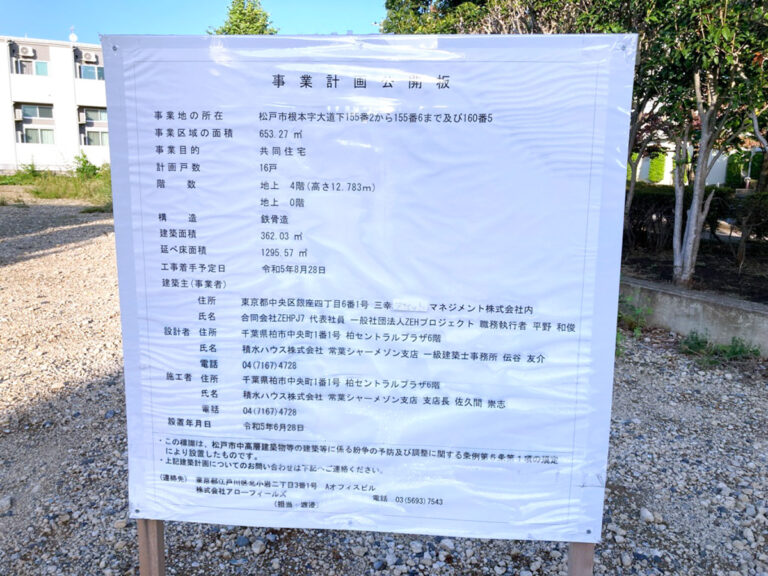 事業計画公開板
事業地の所在 松戸市根本字大道下155番2から155番6まで及び160番5
事業区域の面積 653.27 ㎡
事業目的 共同住宅
計画戸数 16戸
階数 地上 4階(高さ12.783m)
地上 0階
構造 鉄骨造
建築面積 362.03 ㎡
延べ床面積 1295.57 ㎡
工事着手予定日 令和5年8月28日
建築主(事業者)
住所 東京都中央区銀座四丁目6番1号 三幸 マネジメント株式会社内
氏名 合同会社ZEHPJ7 代表社員 一般社団法人ZEHプロジェクト 職務執行者 平野 和俊
設計者 住所 千葉県柏市中央町1番1号 柏セントラルプラザ6階
氏名 積水ハウス株式会社 常葉シャーメゾン支店 一級建築士事務所 伝谷 友介
電話 04(7167)4728
施工者 住所 千葉県柏市中央町1番1号 柏セントラルプラザ6階
氏名 積水ハウス株式会社 常葉シャーメゾン支店 支店長 佐久間 崇志
電話 04(7167)4728
設置年月日 令和5年6月28日
・この標識は、松戸市中高層建築物等の建築等に係る紛争の予防及び調整に関する条例第5条第1項の規定
により設置したものです。
・上記建築計画についてのお問い合わせは下記へご連絡ください。
(連絡先) 東京都江戸川区北小岩二丁目3番1号 Aオフィスビル
株式会社アローフィールズ 電話 03(5693)7543
(担当:渡邊)